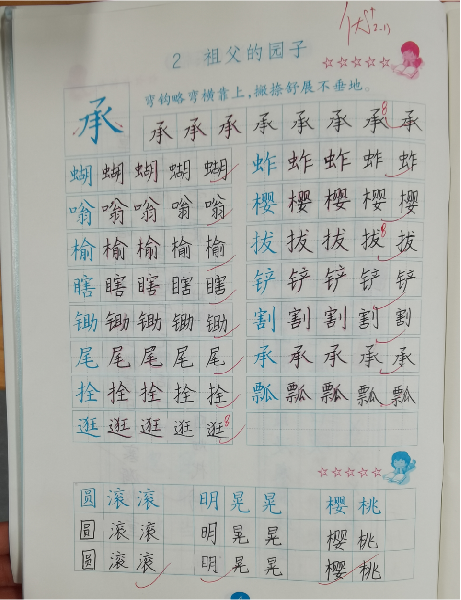 优
2 祖父的园子
弯钩略弯横靠上,撇捺舒展不垂地。
承 承 承 承 承 承 承 承 承
蝴 蝴 蝴 蝴 蝴 蚱 蚱 蚱 蚱 蚱
嗡 嗡 嗡 嗡 嗡 樱 樱 樱 樱 樱
榆 榆 榆 榆 榆 拔 拔 拔 拔 拔
瞎 瞎 瞎 瞎 瞎 铲 铲 铲 铲 铲
锄 锄 锄 锄 锄 割 割 割 割 割
尾 尾 尾 尾 尾 承 承 承 承 承
拴 拴 拴 拴 拴 瓢 瓢 瓢 瓢 瓢
逛 逛 逛 逛 逛
圆 滚 滚 明 晃 晃 樱 桃
圆 滚 滚 明 晃 晃 樱 桃
圆 滚 滚 明 晃 晃 樱 桃